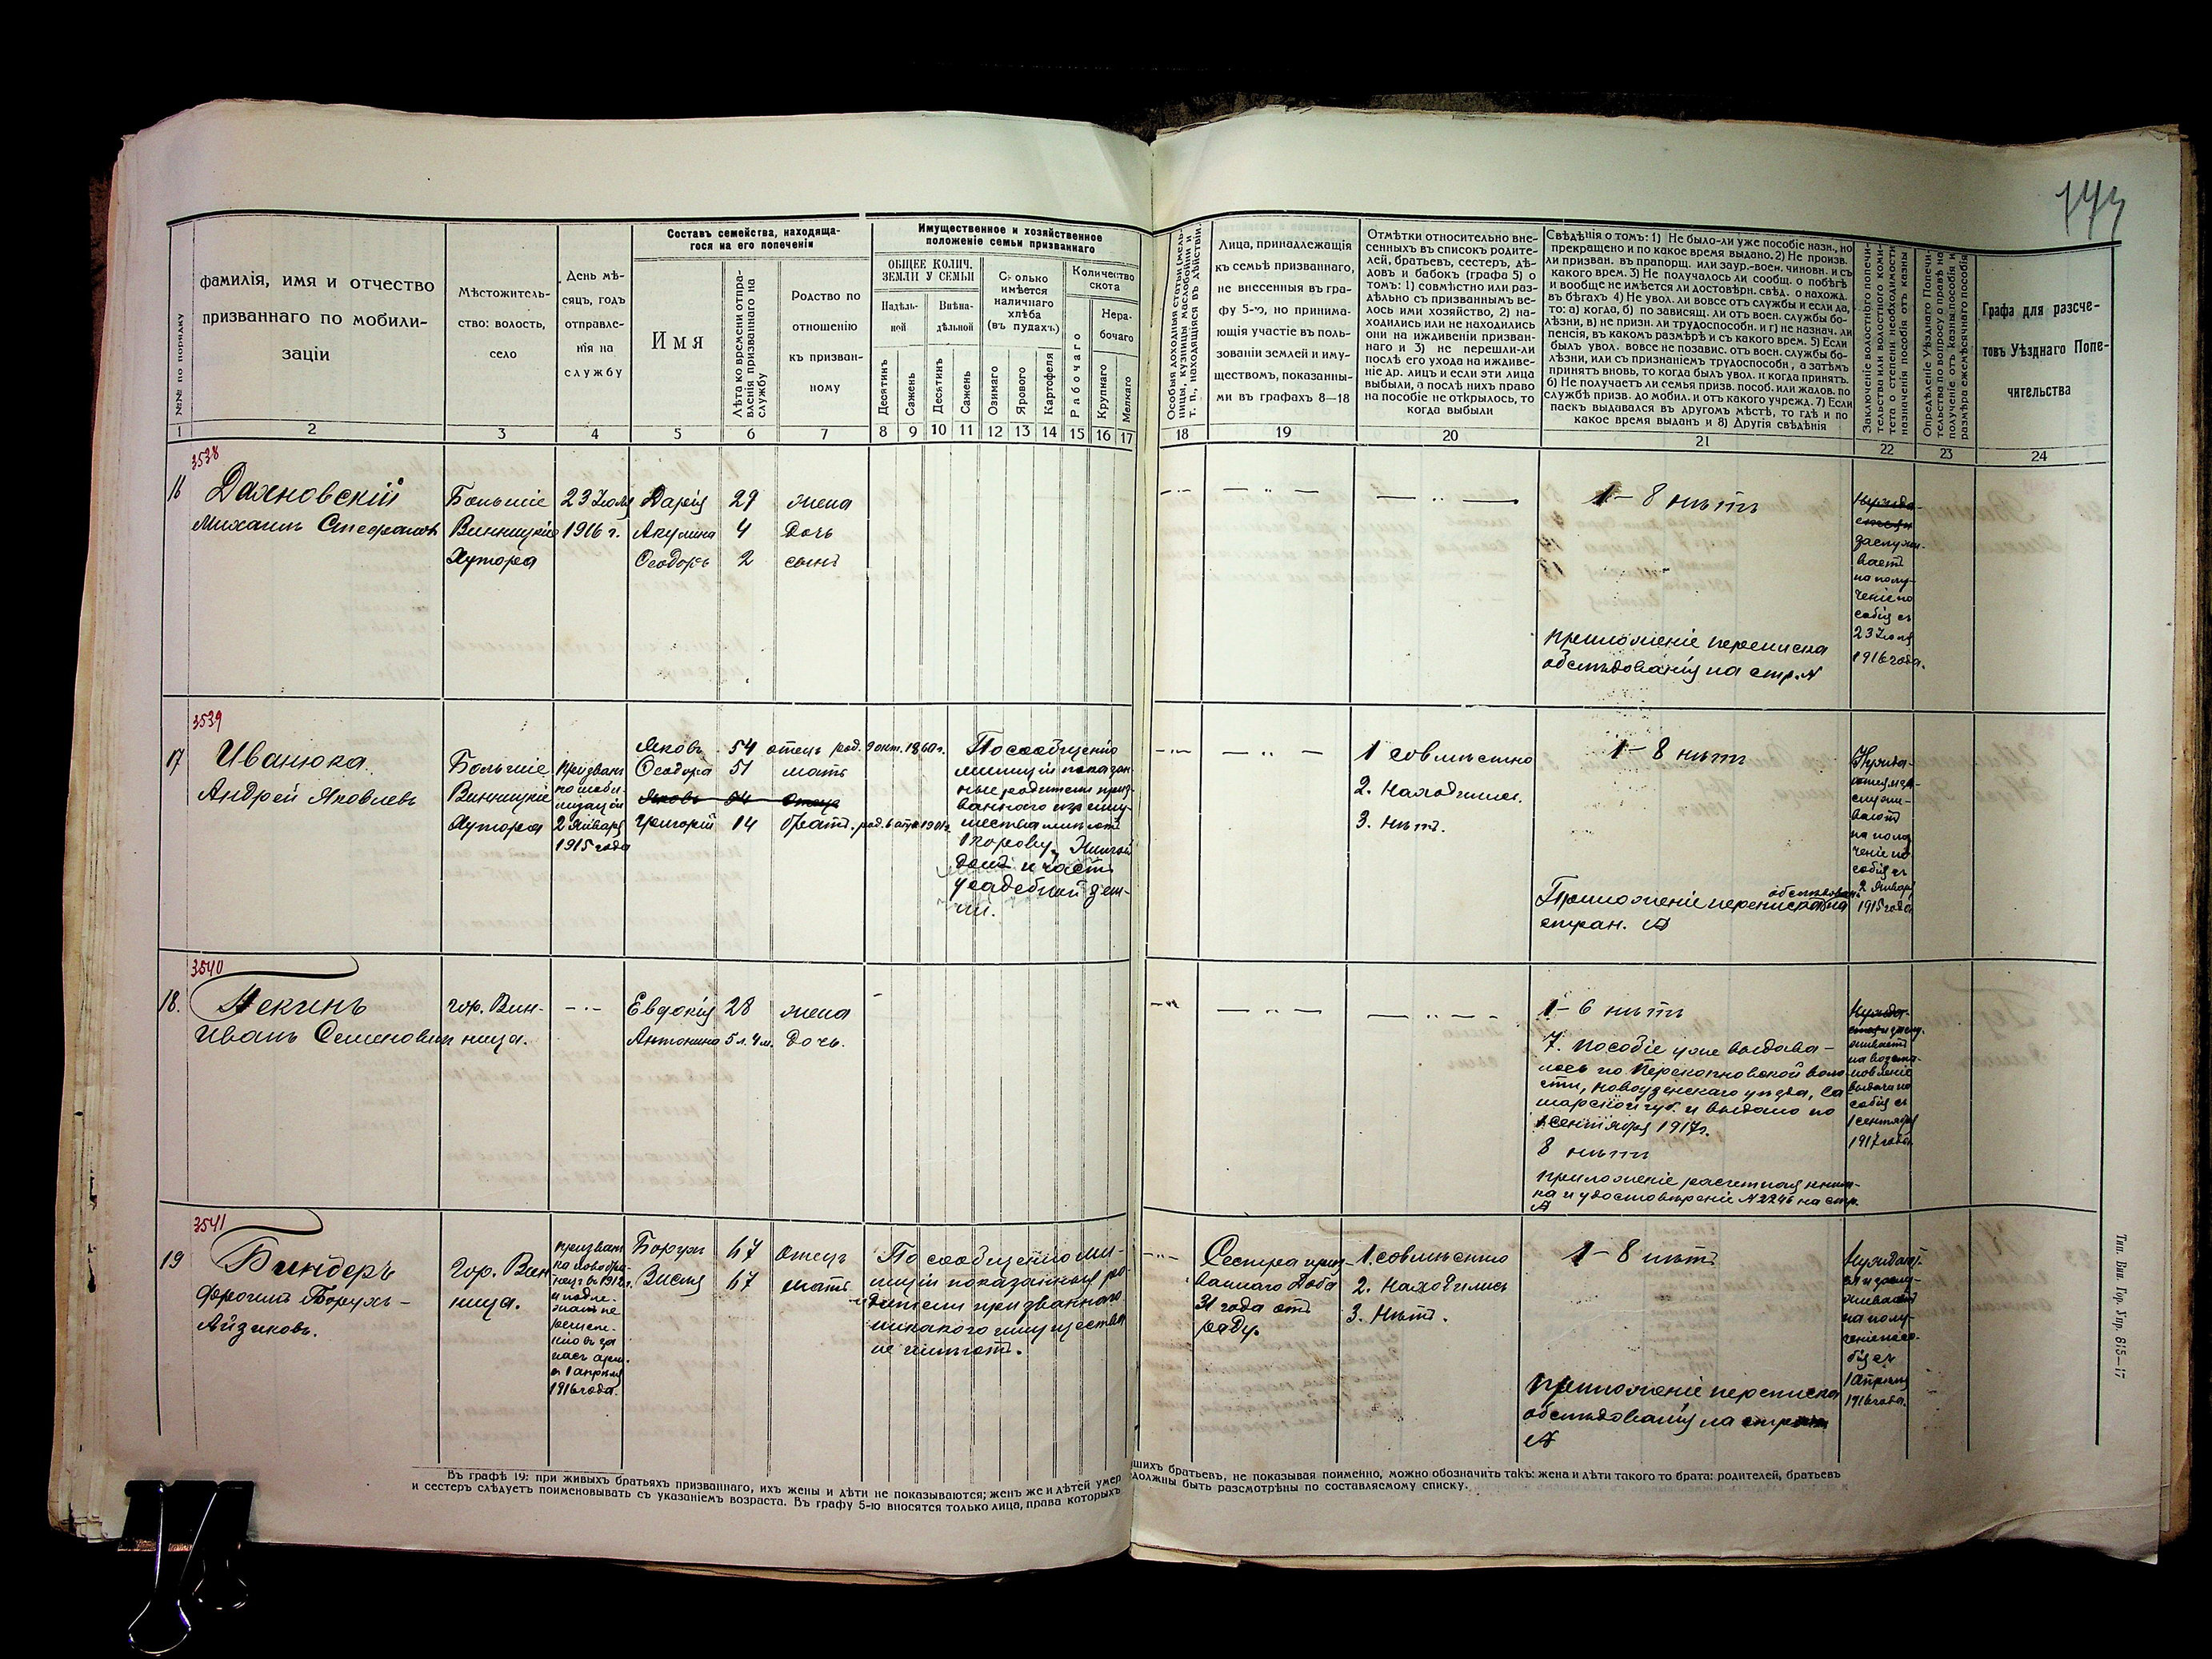 фамилія, имя и отчество
призваннаго по мобили-
заціи
Мѣстожитель-
ство: волость,
село
День мѣ-
сяцъ, годъ
отправле-
нія на
службу
Составъ семейства, находяща-
гося на его попеченіи
Имя
Лѣта ко времени отпра-
вленія призваннаго на
службу
Родство по
отношенію
къ призван-
ному
Имущественное и хозяйственное
положеніе семьи призваннаго
ОБЩЕЕ КОЛИЧ.
ЗЕМЛИ У СЕМЬИ
Надѣль-
ной
Внѣна-
дѣльной
Десятинъ
Сажень
Десятинъ
Сажень
Сколько
имѣется
наличнаго
хлѣба
(въ пудахъ)
Озимаго
Ярового
Картофеля
Количество
скота
Рабочаго
Нера-
бочаго
Крупнаго
Мелкаго
№№ по порядку
1 2 3 4 5 6 7 8 9 10 11 12 13 14 15 16 17
Особыя доходныя статьи (мель-
ницы, кузницы маслобойни и
т. п., находящіяся въ дѣйствіи.
Лица, принадлежащія
къ семьѣ призваннаго,
не внесенныя въ гра-
фу 5-ю, но принима-
ющія участіе въ поль-
зованіи землей и иму-
ществомъ, показанны-
ми въ графахъ 8—18
Отмѣтки относительно вне-
сенныхъ въ списокъ родите-
лей, братьевъ, сестеръ, дѣ-
довъ и бабокъ (графа 5) о
томъ: 1) совмѣстно или раз-
дѣльно съ призваннымъ ве-
лось ими хозяйство, 2) на-
ходились или не находились
они на иждивеніи призван-
наго и 3) не перешли-ли
послѣ его ухода на иждиве-
ніе др. лицъ и если эти лица
выбыли, а послѣ нихъ право
на пособіе не открылось, то
когда выбыли
Свѣдѣнія о томъ: 1) Не было-ли уже пособіе назн., но
прекращено и по какое время выдано. 2) Не произв.
ли призван. въ прапорщ. или заур.-воен. чиновн. и съ
какого врем. 3) Не получалось ли сообщ. о побѣгѣ
и вообще не имѣется ли достовѣрн. свѣд. о нахожд.
въ бѣгахъ 4) Не увол. ли вовсе отъ службы и если да,
то: а) когда, б) по зависящ. ли отъ воен. службы бо-
лѣзни, в) не призн. ли трудоспособн. и г) не назнач. ли
пенсія, въ какомъ размѣрѣ и съ какого врем. 5) Если
былъ увол. вовсе не по завис. отъ воен. службы бо-
лѣзни, или съ признаніемъ трудоспособн., а затѣмъ
принятъ вновь, то когда былъ увол. и когда принятъ.
6) Не получаетъ ли семья призв. пособ. или жалов. по
службѣ призв. до мобил. и отъ какого учрежд. 7) Если
паекъ выдавался въ другомъ мѣстѣ, то гдѣ и по
какое время выданъ и 8) Другія свѣдѣнія
Заключеніе волостного попечи-
тельства или волостного коми-
тета о степени необходимости
назначенія пособія отъ казны
Опредѣленіе Уѣзднаго Попечи-
тельства по вопросу о правѣ на
полученіе отъ казны пособія и
размѣра ежемѣсячнаго пособія
Графа для разсче-
товъ Уѣзднаго Попе-
чительства
18 19 20 21 22 23 24
3538
16 Дахновскій
Михаилъ Стефановъ
Большіе
Винницкіе
Хутора
23 Іюля
1916 г.
Дарія 29 жена
Акулина 4 дочь
Ѳеодоръ 2 сынъ
1—8 нѣтъ
приложеніе переписка
обслѣдованія на стр. №
Нужда-
ется и
заслужи-
ваетъ
на полу-
ченіе по
собія съ
23 Іюля
1916 года.
3539
17 Иванюка
Андрей Яковлевъ
Большіе
Винницкіе
Хутора
Призванъ
по моби-
лизаціи
2 Января
1915 года
Яковъ 54 отецъ род. 9 окт. 1860 г.
Ѳеодора 51 мать
Яковъ 54 отецъ
Григорій 14 братъ. род. 6 апр. 1901 г.
По сообщенію
милиціи показан
ные родители приз-
ваннаго изъ иму-
щества имѣютъ
1 корову, жилой
домъ и часть
усадебной зем-
ли.
1 совмѣстно
2. находились.
3. нѣтъ.
1—8 нѣтъ
обслѣдован.
Приложеніе переписка на
стран. №
Нужда-
ются и за-
служи-
ваютъ
на полу
ченіе по
собія съ
2 Января
1915 года
3540
18. Пекинъ
Иванъ Семеновичъ
гор. Вин-
ница.
Евдокія 28 жена
Антонина 5 л. 4 м. дочь.
1—6 нѣтъ
7. пособіе уже выдава-
лось по Перекопновской воло
сти, новоузенскаго уѣзда, Са
марской губ. и выдано по
1 сентября 1917 г.
8 нѣтъ
приложеніе расчетная книж-
ка и удостовѣреніе № 2246 на стр.
№
Нуждает-
ся и заслу-
живаетъ
на возста-
новленіе
выдачи по
собія съ
1 сентября
1917 года
3541
19 Биндеръ
Фроимъ Борухъ-
Айзиковъ.
Гор. Вин
ница.
призванъ
на новобра-
нецъ въ 1912 г.
с 1 апрѣля
1916 года.
Борухъ 67 отецъ
Висия 67 мать
По сообщенію ми-
лиціи показанныя ро-
дители призваннаго
никакого имущества
не имѣютъ.
Сестра приз-
ваннаго Доба
31 года отъ
роду.
1. совмѣстно
2. находились
3. нѣтъ.
1—8 нѣтъ
приложеніе переписка
обслѣдованія на стран
№
Нуждают-
ся и заслу-
живаютъ
на полу-
ченіе посо-
бія съ
1 Апрѣля
1916 года.
Въ графѣ 19: при живыхъ братьяхъ призваннаго, ихъ жены и дѣти не показываются; женъ же и дѣтей умершихъ братьевъ, не показывая поименно, можно обозначить такъ: жена и дѣти такого то брата: родителей, братьевъ
и сестеръ слѣдуетъ поименовывать съ указаніемъ возраста. Въ графу 5-ю вносятся только лица, права которыхъ должны быть разсмотрѣны по составляемому списку.
Тип. Вин. Гор. Упр. 815—17